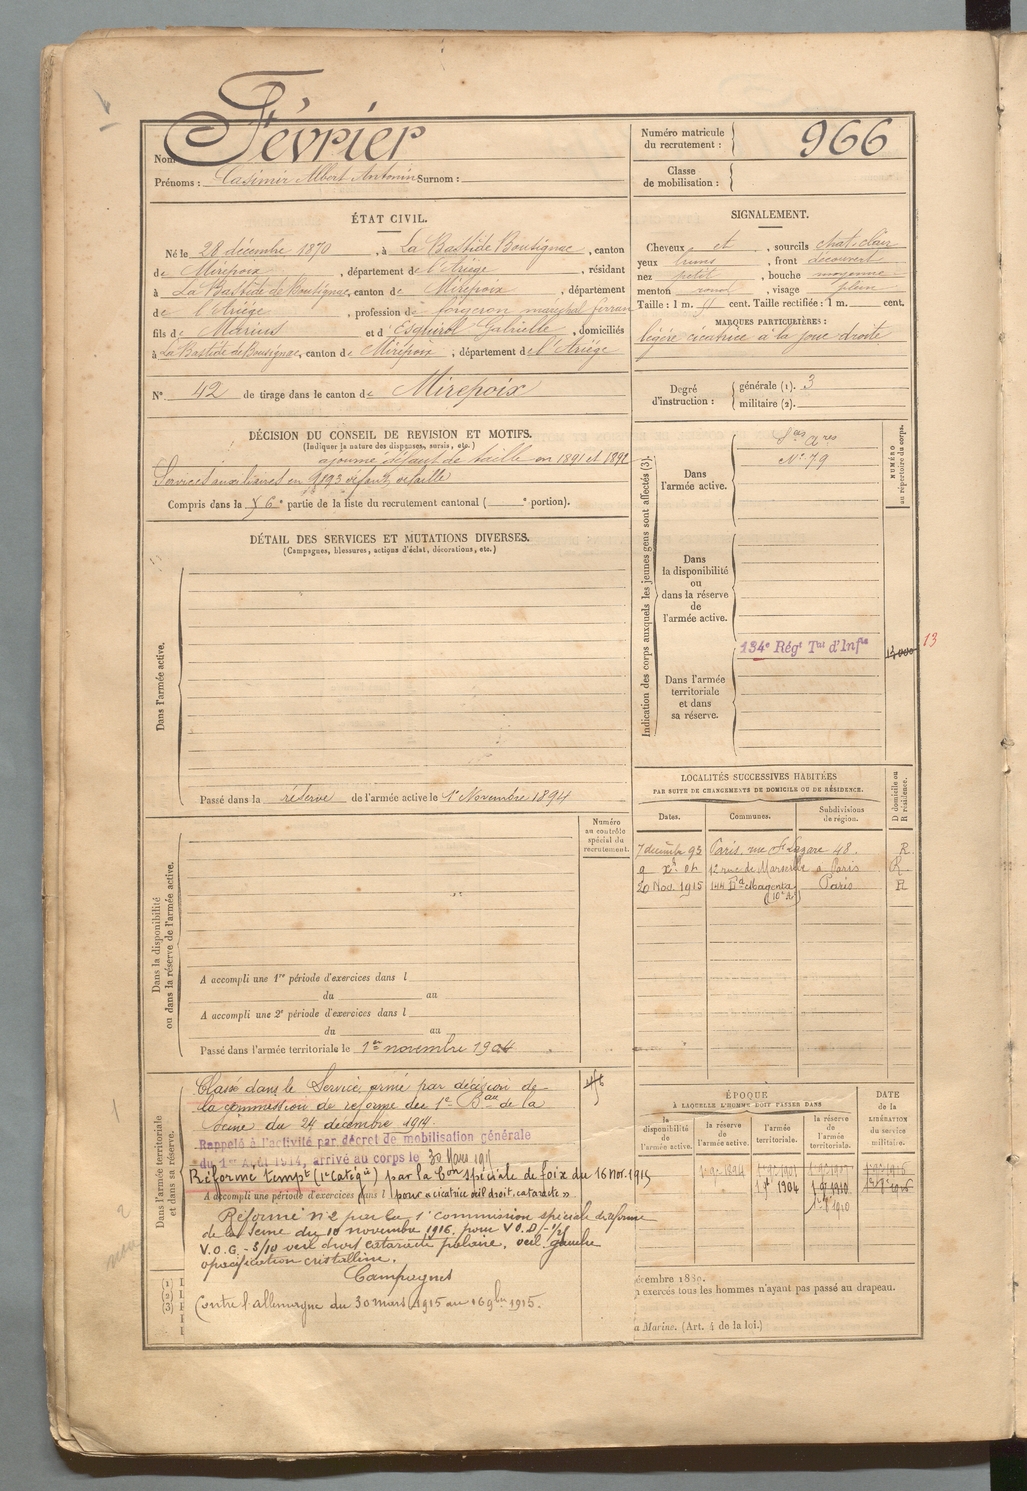 Février
Nom
Prénoms : Casimir Albert Antonin Surnom :
Numéro matricule
du recrutement : 966
Classe
de mobilisation :
ÉTAT CIVIL.
Né le 28 décembre 1870, à La Bastide Bousignac, canton
de Mirepoix, département de l'Ariège, résidant
à La Bastide de Bousignac, canton de Mirepoix, département
de l'Ariège, profession de forgeron maréchal ferran
fils de Marius et d'Esquirol Gabrielle, domiciliés
à La Bastide de Bousignac, canton de Mirepoix, département de l'Ariège
N° 42 de tirage dans le canton de Mirepoix
SIGNALEMENT.
Cheveux et, sourcils chat. clair
yeux bruns, front découvert
nez petit, bouche moyenne
menton rond, visage plein
Taille : 1 m. cent. Taille rectifiée : 1 m. cent.
MARQUES PARTICULIÈRES :
légère cicatrice à la joue droite
Degré
d'instruction :
générale (1). 3
militaire (2).
DÉCISION DU CONSEIL DE REVISION ET MOTIFS.
(Indiquer la nature des dispenses, sursis, etc.)
ajourné défaut de taille en 1891 et 1892
Services auxiliaires en 1893 défaut de taille
Compris dans la 6e partie de la liste du recrutement cantonal ( e portion).
DÉTAIL DES SERVICES ET MUTATIONS DIVERSES.
(Campagnes, blessures, actions d'éclat, décorations, etc.)
Dans l'armée active.
Passé dans la réserve de l'armée active le 1er Novembre 1894
Indication des corps auxquels les jeunes gens sont affectés (3).
NUMÉRO
au répertoire du corps.
Dans
l'armée active.
Sces Aires
N° 79
Dans
la disponibilité
ou
dans la réserve
de
l'armée active.
134e Régt Tal d'Infie
13,000
13
Dans l'armée
territoriale
et dans
sa réserve.
LOCALITÉS SUCCESSIVES HABITÉES
PAR SUITE DE CHANGEMENTS DE DOMICILE OU DE RÉSIDENCE.
D domicile ou
R résidence.
Dates. Communes. Subdivisions
de région.
7 décembre 93 Paris, rue St Lazare 48. R
9 12 rue de Marseille à Paris R
20 Nov. 1915 144 Bd Magenta Paris R
(10e At)
Numéro
au contrôle
spécial du
recrutement.
Dans la disponibilité
ou dans la réserve de l'armée active.
A accompli une 1re période d'exercices dans l
du au
A accompli une 2e période d'exercices dans l
du au
Passé dans l'armée territoriale le 1er novembre 1904
Dans l'armée territoriale
et dans sa réserve.
Classé dans le Service armé par décision de
la commission de réforme du 1er Bau de la
Seine du 24 décembre 1914.
Rappelé à l'activité par décret de mobilisation générale
du 1er Août 1914, arrivé au corps le 30 Mars 1915
Réformé tempt (1e Catégie) par la Con spéciale de foix du 16 Nov. 1915
A accompli une période d'exercices dans l pour « cicatrice œil droit, cataracte »
Réformé n° 2 par la 1e commission spéciale de réforme
de la Seine du 10 novembre 1916, pour V.O.D
V.O.G. - 5/10 œil droit cataracte polaire, œil gauche
opacification cristalline.
Campagnes
Contre l'allemagne du 30 mars 1915 au 16 9bre 1915.
ÉPOQUE
À LAQUELLE L'HOMME DOIT PASSER DANS
DATE
de la
LIBÉRATION
du service
militaire.
la
disponibilité
de
l'armée active.
la réserve
de
l'armée active.
l'armée
territoriale.
la réserve
de
l'armée
territoriale.
1904 1910
1910
(1)
(2)
(3)
écembre 1889.
exercés tous les hommes n'ayant pas passé au drapeau.
a Marine. (Art. 4 de la loi.)